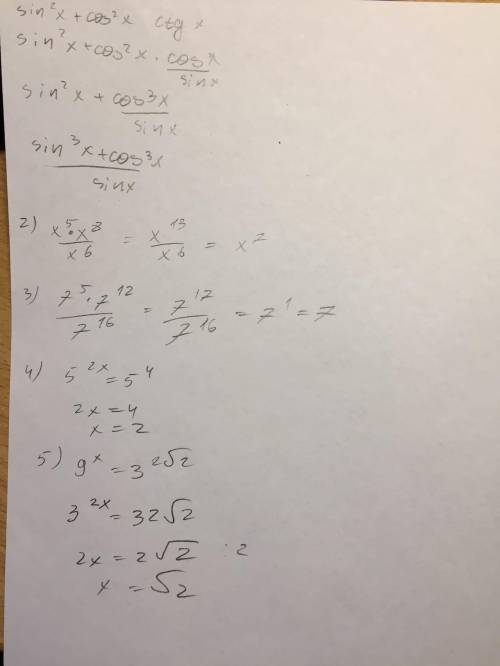 sin²x + cos²x ctg x
sin²x + cos²x · cosx/sinx
sin²x + cos³x/sinx
sin³x + cos³x/sinx
2) x⁵·x⁸/x⁶ = x¹³/x⁶ = x⁷
3) 7⁵·7¹²/7¹⁶ = 7¹⁷/7¹⁶ = 7¹ = 7
4) 5²ˣ = 5⁴
2x = 4
x = 2
5) 9ˣ = 3^2√2
3²ˣ = 32√2
2x = 2√2 :2
x = √2